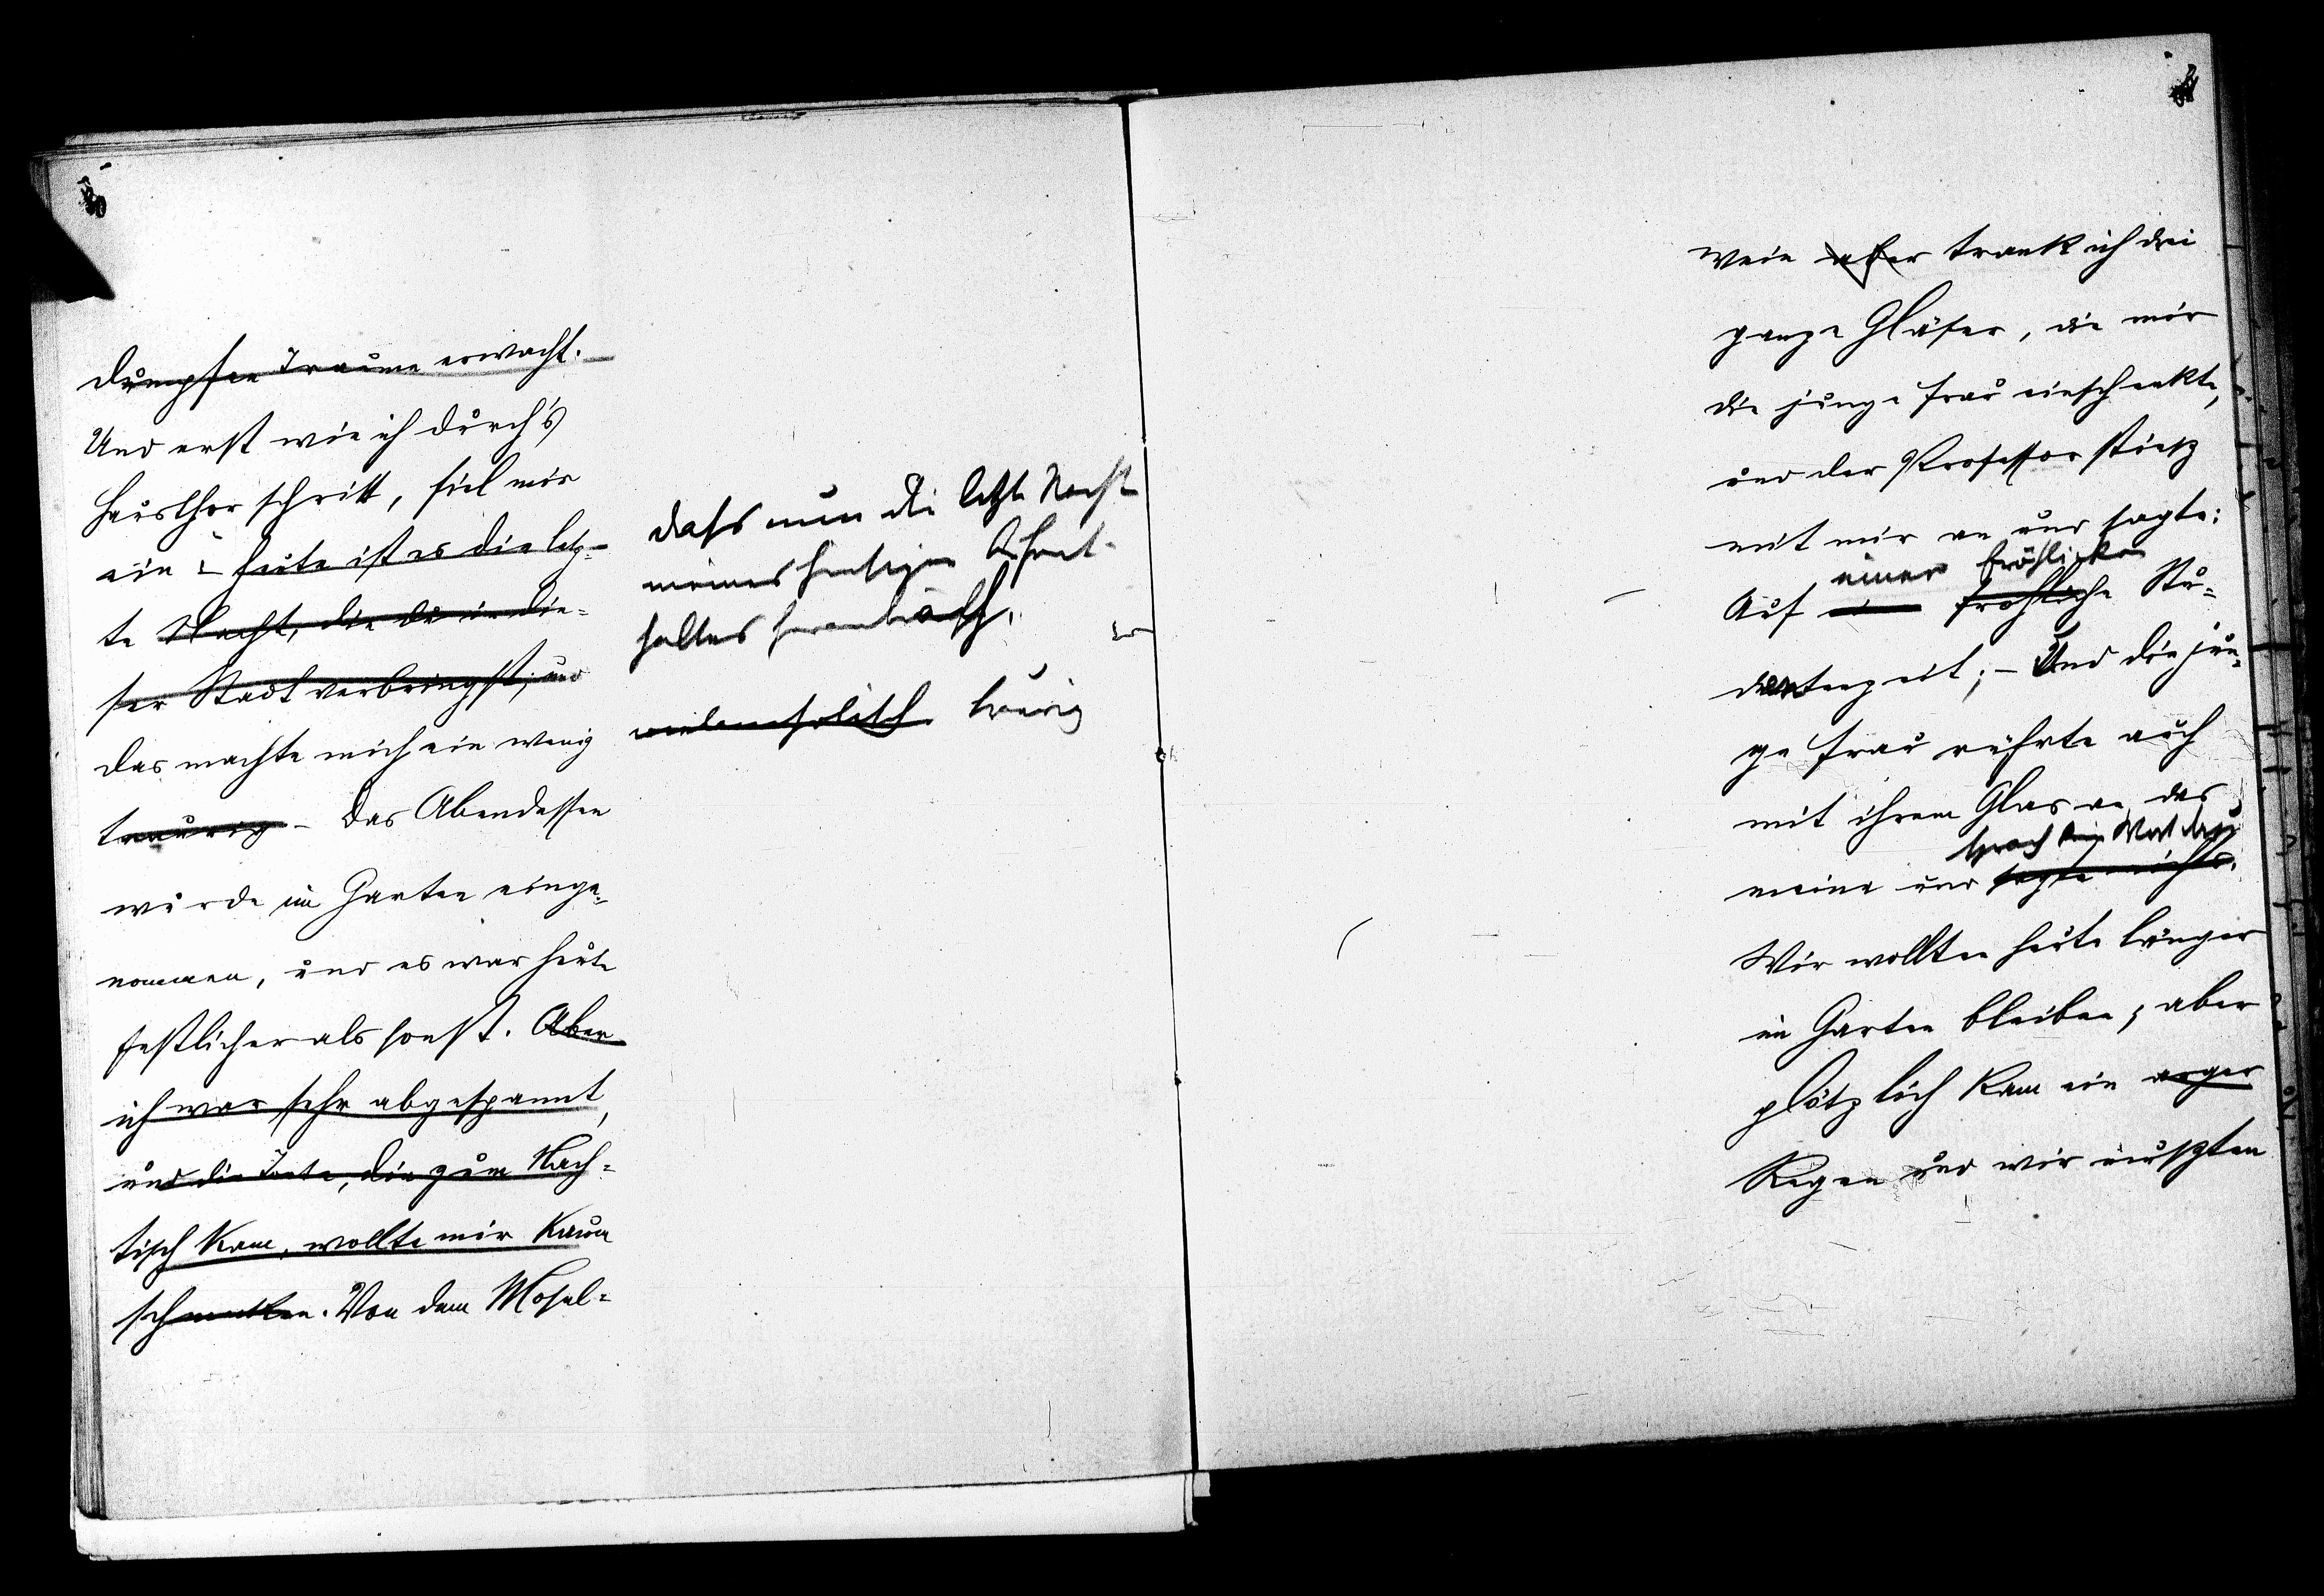 dumpfen Traume erwacht.
Und erst wie ich durch's
Hausthor schritt, fiel mir
ein – heute ist es die letz-
te Nacht, die du in die-
ser Stadt verbringst, und
das machte mich ein wenig
traurig – Das Abendessen
wurde im Garten einge-
nommen, und es war heute
festlicher als sonst. Aber
ich war sehr abgespannt,
und die Torte, die zum Nach-
tisch kam, wollte mir kaum
schmecken. Von dem Mosel-
dass nun die letzte Nacht
meines hiesigen Aufent-
haltes heranbräch,
melancholisch traurig
wein aber trank ich drei
ganze Gläser, die mir
die junge Frau einschenkte,
und der Professor stiesz
mit mir an und sagte:
einer fröhlichen
Auf eine fröhliche Stu-
dentenzeit; – Und die jun-
ge Frau rührte auch
mit ihrem Glas an das
sprach kein Wort dazu
meine und sagte nichts.
Wir wollten heute länger
im Garten bleiben; aber
plötzlich kam ein arger
Regen und wir muszten